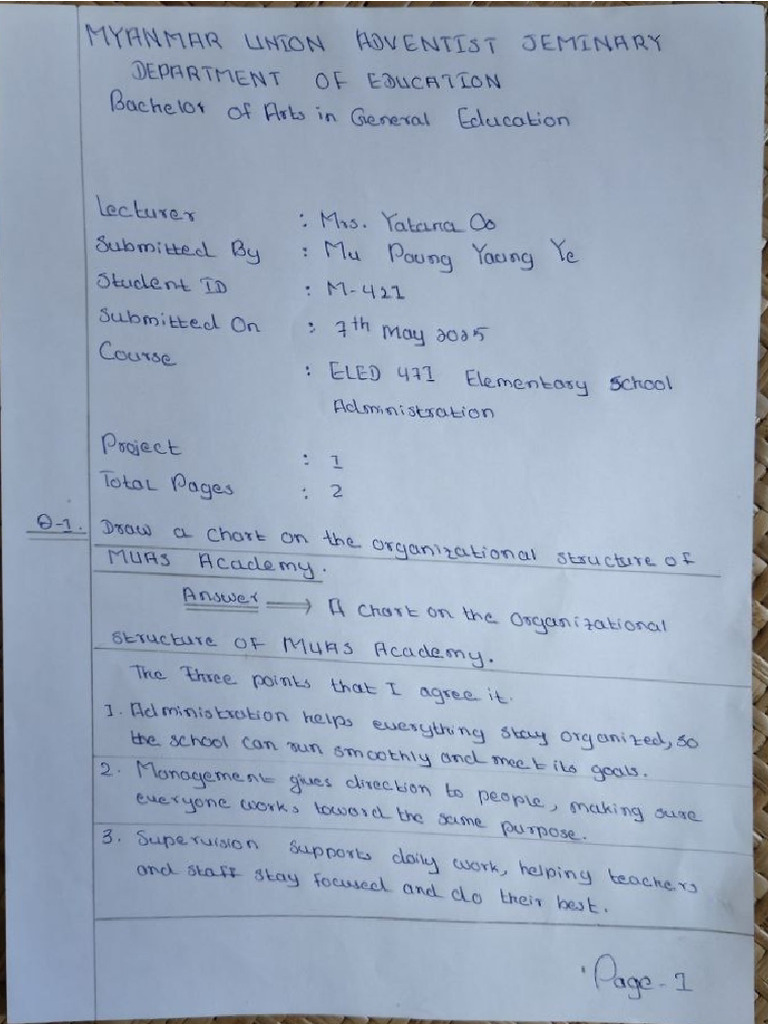 MYANMAR UNION ADVENTIST SEMINARY
DEPARTMENT OF EDUCATION
Bachelor of Arts in General Education
Lecturer : Mrs. Yatana Oo
Submitted By : Mu Poung Yaung Ye
Student ID : M-421
Submitted On : 7th May 2025
Course : ELED 471 Elementary School
Administration
Project : 1
Total Pages : 2
Q-1. Draw a chart on the organizational structure of
MUAS Academy.
Answer → A chart on the organizational
structure of MUAS Academy.
The three points that I agree it.
1. Administration helps everything stay organized, so
the school can run smoothly and meet its goals.
2. Management gives direction to people, making sure
everyone works toward the same purpose.
3. Supervision supports daily work, helping teachers
and staff stay focused and do their best.
Page-1